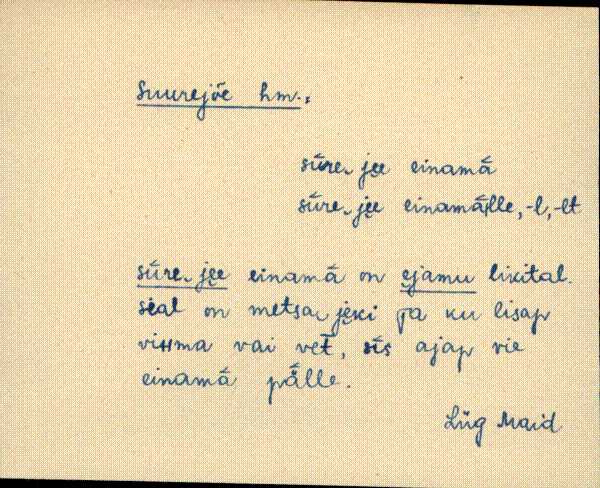 Suurejõe hm.:
sūre͜ jẹe einamā́
sūre͜ jẹe einamā́lle, -l, -lt
sūre͜ jẹe einamā́ on ẹjamu likital.
siäl on metsa͜ jẹki ja ku lisap
vihma vai vet̄, sīs ajap vie
einamā́ pǟlle.
Lüg Maid